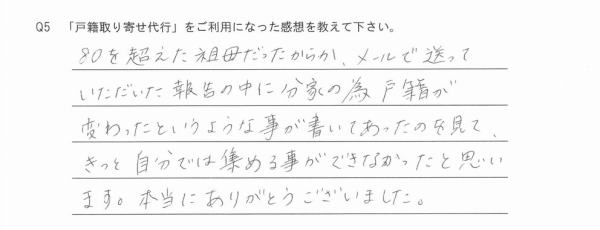 Q5 「戸籍取り寄せ代行」をご利用になった感想を教えて下さい。
80を超えた祖母だったからか、メールで送って
いただいた報告の中に分家の為戸籍が
変わったというような事が書いてあったのを見て、
きっと自分では集める事ができなかったと思い
ます。本当にありがとうございました。